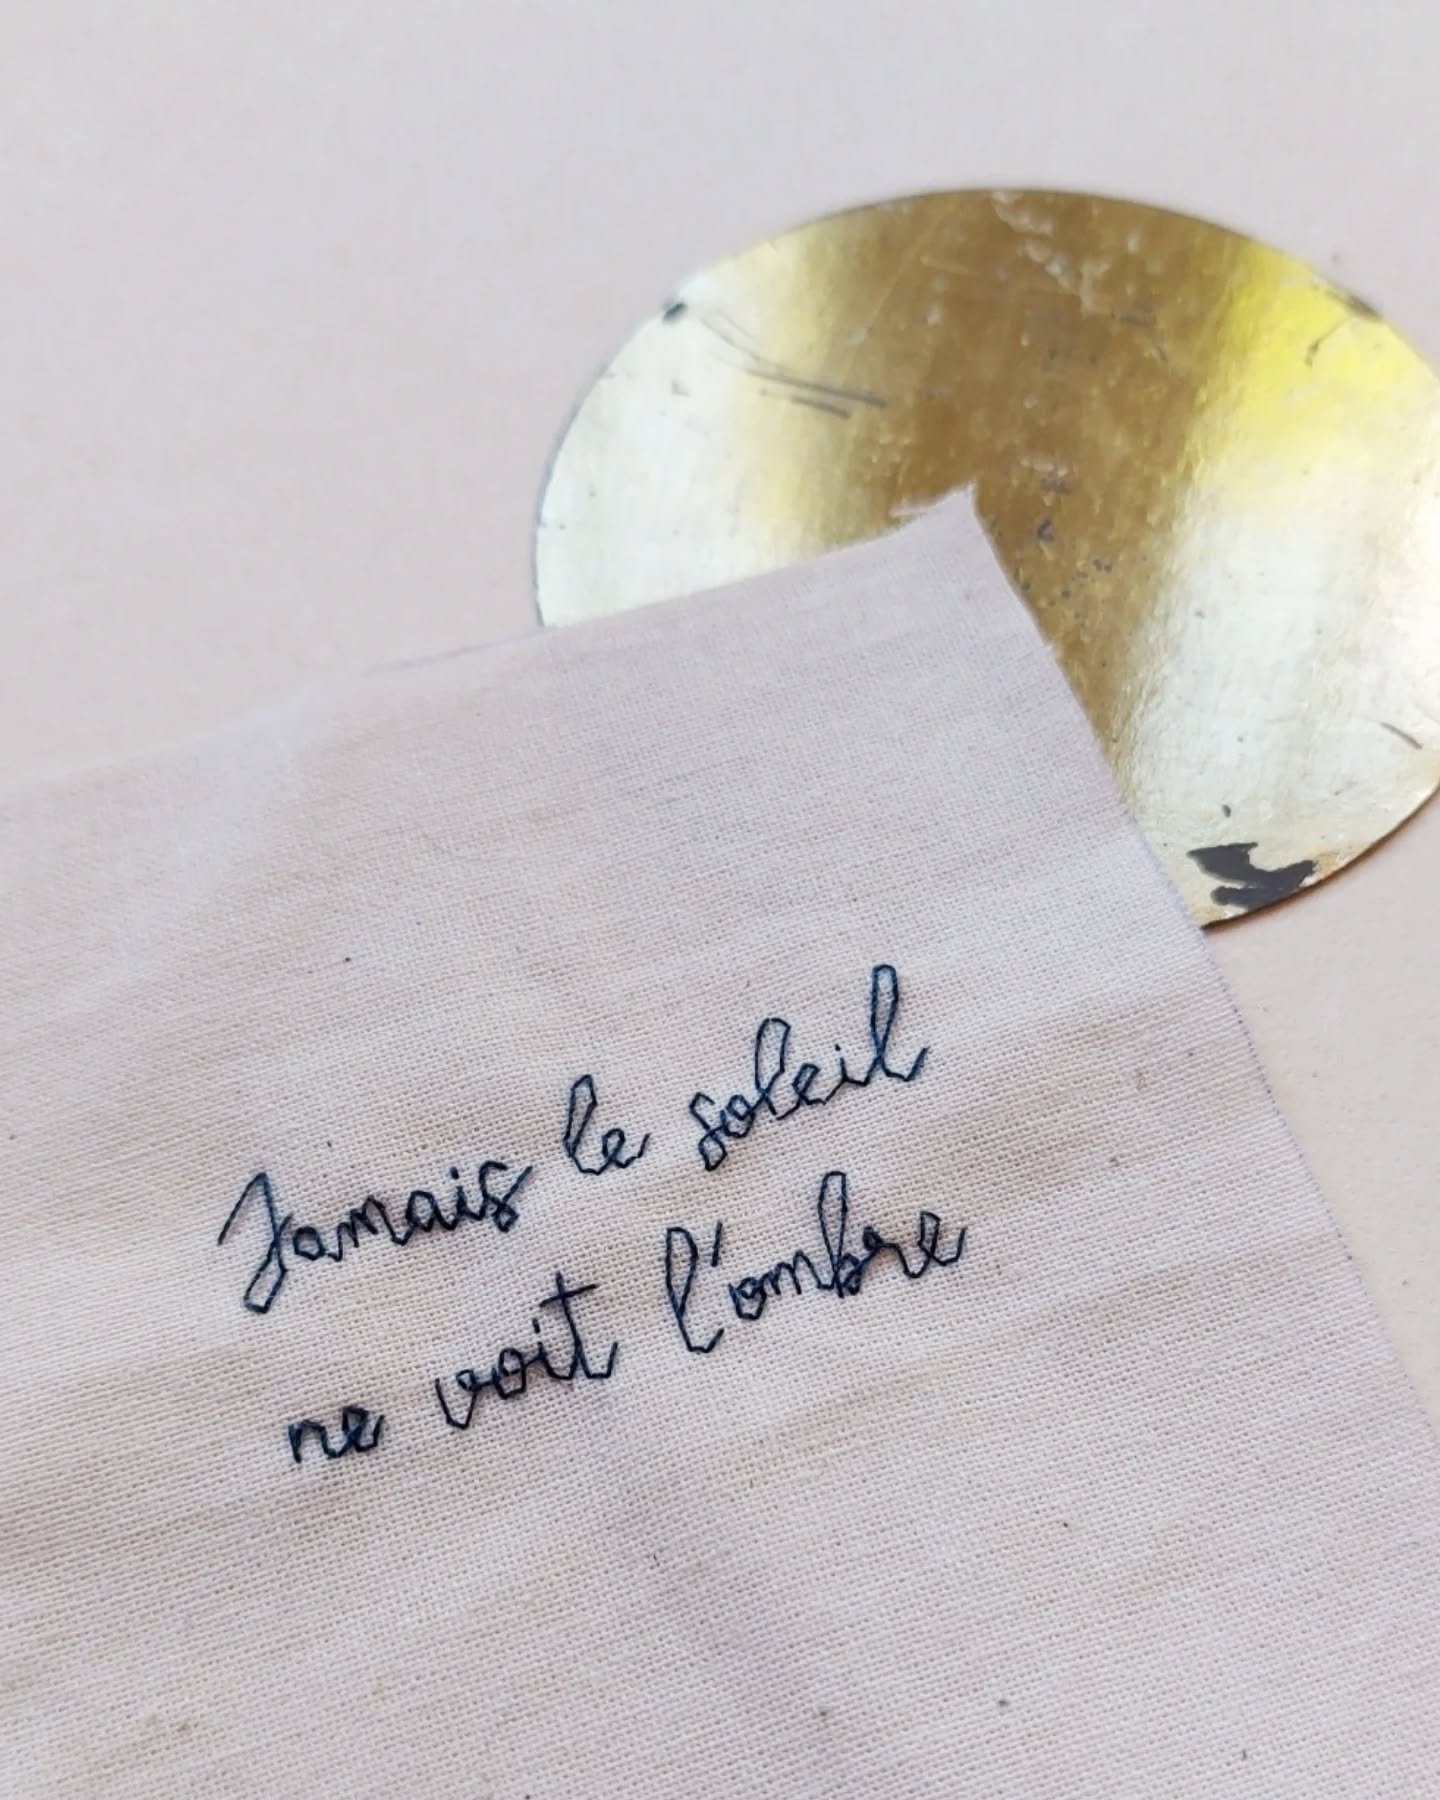 Jamais le soleil
ne voit l'ombre